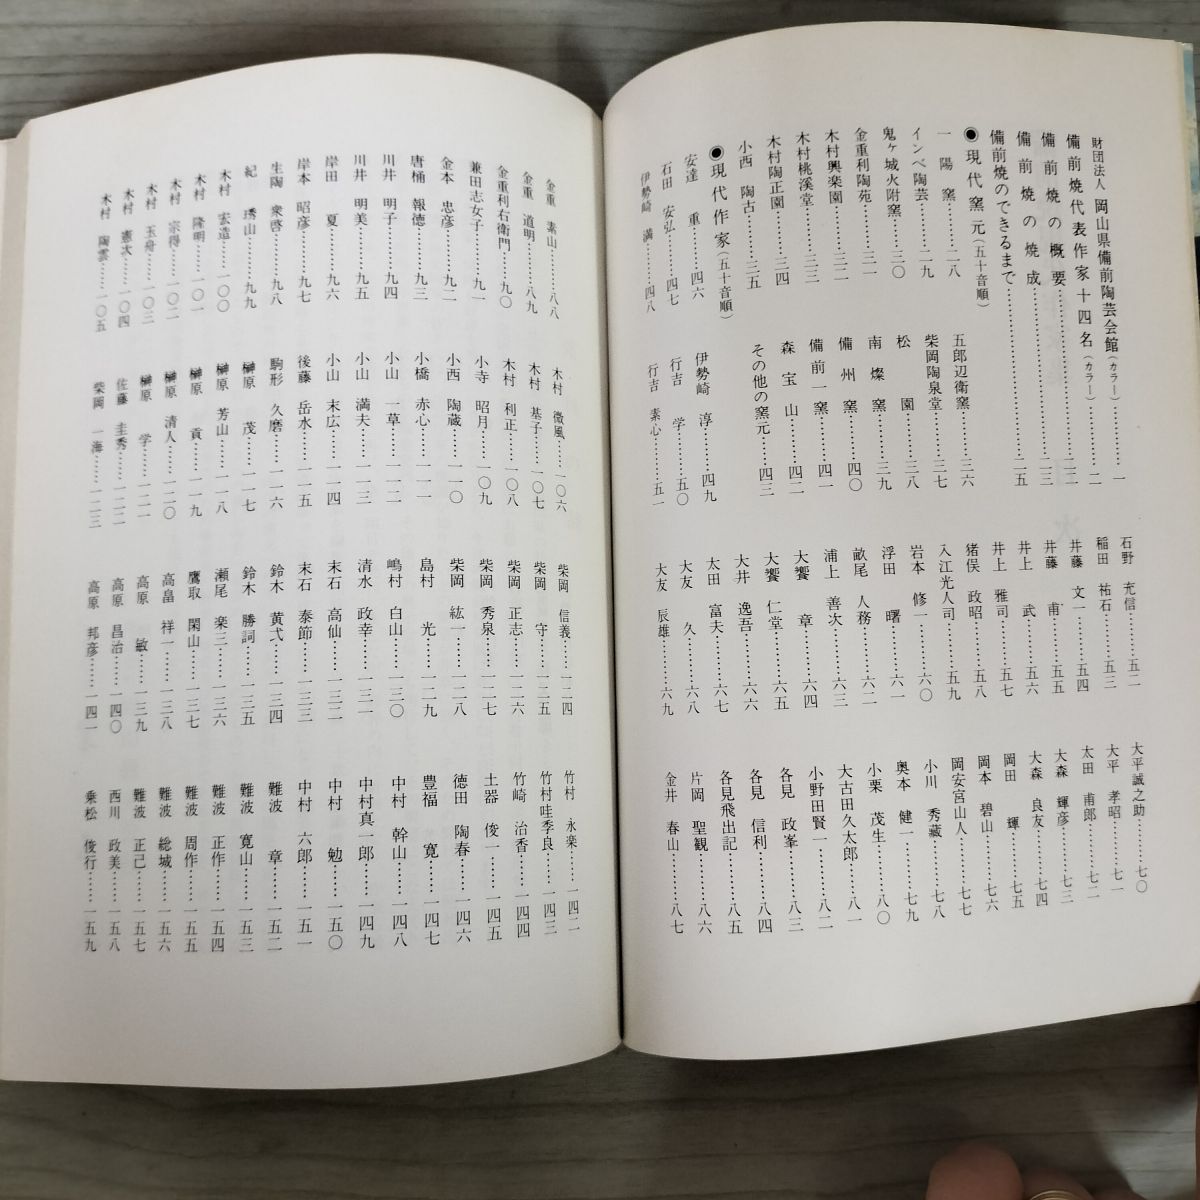 財団法人 岡山県備前陶芸会館(カラー)……一
備前焼代表作家十四名(カラー)……二
備前焼の概要……一二
備前焼の焼成……一三
備前焼のできるまで……一五
◉現代窯元(五十音順)
一陽窯……二八
インベ陶芸……二九
鬼ヶ城火附窯……三〇
金重利陶苑……三一
木村興楽園……三二
木村桃渓堂……三三
木村陶正園……三四
小西陶古……三五
五郎辺衛窯……三六
柴岡陶泉堂……三七
松園……三八
南燦窯……三九
備州窯……四〇
備前一窯……四一
森宝山……四二
その他の窯元……四三
◉現代作家(五十音順)
安達 重……四六
石田 安弘……四七
伊勢崎 満……四八
伊勢崎 淳……四九
行吉 学……五〇
行吉 素心……五一
石野 充信……五二
稲田 祐石……五三
井藤 文一……五四
井藤 甫……五五
井上 武……五六
井上 雅司……五七
猪俣 政昭……五八
入江光人司……五九
岩本 修一……六〇
浮田 曙……六一
畝尾 人務……六二
浦上 善次……六三
大饗 章……六四
大饗 仁堂……六五
大井 逸吾……六六
太田 富夫……六七
大友 久……六八
大友 辰雄……六九
大平誠之助……七〇
大平 孝昭……七一
太田 甫郎……七二
大森 輝彦……七三
大森 良友……七四
岡田 輝……七五
岡本 碧山……七六
岡安宮山人……七七
小川 秀藏……七八
奥本 健一……七九
小栗 茂生……八〇
大古田久太郎……八一
小野田賢一……八二
各見 政峯……八三
各見 信利……八四
各見飛出記……八五
片岡 聖観……八六
金井 春山……八七
金重 素山……八八
金重 道明……八九
金重利右衛門……九〇
兼田志女子……九一
金本 忠彦……九二
唐桶 報徳……九三
川井 明子……九四
川井 明美……九五
岸田 夏……九六
岸本 昭彦……九七
生陶 衆啓……九八
紀 琇山……九九
木村 宏造……一〇〇
木村 隆明……一〇一
木村 宗得……一〇二
木村 玉舟……一〇三
木村 憲次……一〇四
木村 陶雲……一〇五
木村 微風……一〇六
木村 基子……一〇七
木村 利正……一〇八
小寺 昭月……一〇九
小西 陶蔵……一一〇
小橋 赤心……一一一
小山 一草……一一二
小山 満夫……一一三
小山 末広……一一四
後藤 岳水……一一五
駒形 久磨……一一六
榊原 茂……一一七
榊原 芳山……一一八
榊原 貢……一一九
榊原 清人……一二〇
榊原 学……一二一
佐藤 圭秀……一二二
柴岡 一海……一二三
柴岡 信義……一二四
柴岡 守……一二五
柴岡 正志……一二六
柴岡 秀泉……一二七
柴岡 紘一……一二八
島村 光……一二九
嶋村 白山……一三〇
清水 政幸……一三一
末石 高仙……一三二
末石 泰節……一三三
鈴木 黄弌……一三四
鈴木 勝詞……一三五
瀬尾 楽三……一三六
鷹取 閑山……一三七
高畠 祥一……一三八
高原 敏……一三九
高原 昌治……一四〇
高原 邦彦……一四一
竹村 永楽……一四二
竹村哇季良……一四三
竹崎 治香……一四四
土器 俊一……一四五
徳田 陶春……一四六
豊福 寛……一四七
中村 幹山……一四八
中村真一郎……一四九
中村 勉……一五〇
中村 六郎……一五一
難波 章……一五二
難波 寛山……一五三
難波 正作……一五四
難波 周作……一五五
難波 総城……一五六
難波 正己……一五七
西川 政美……一五八
乗松 俊行……一五九